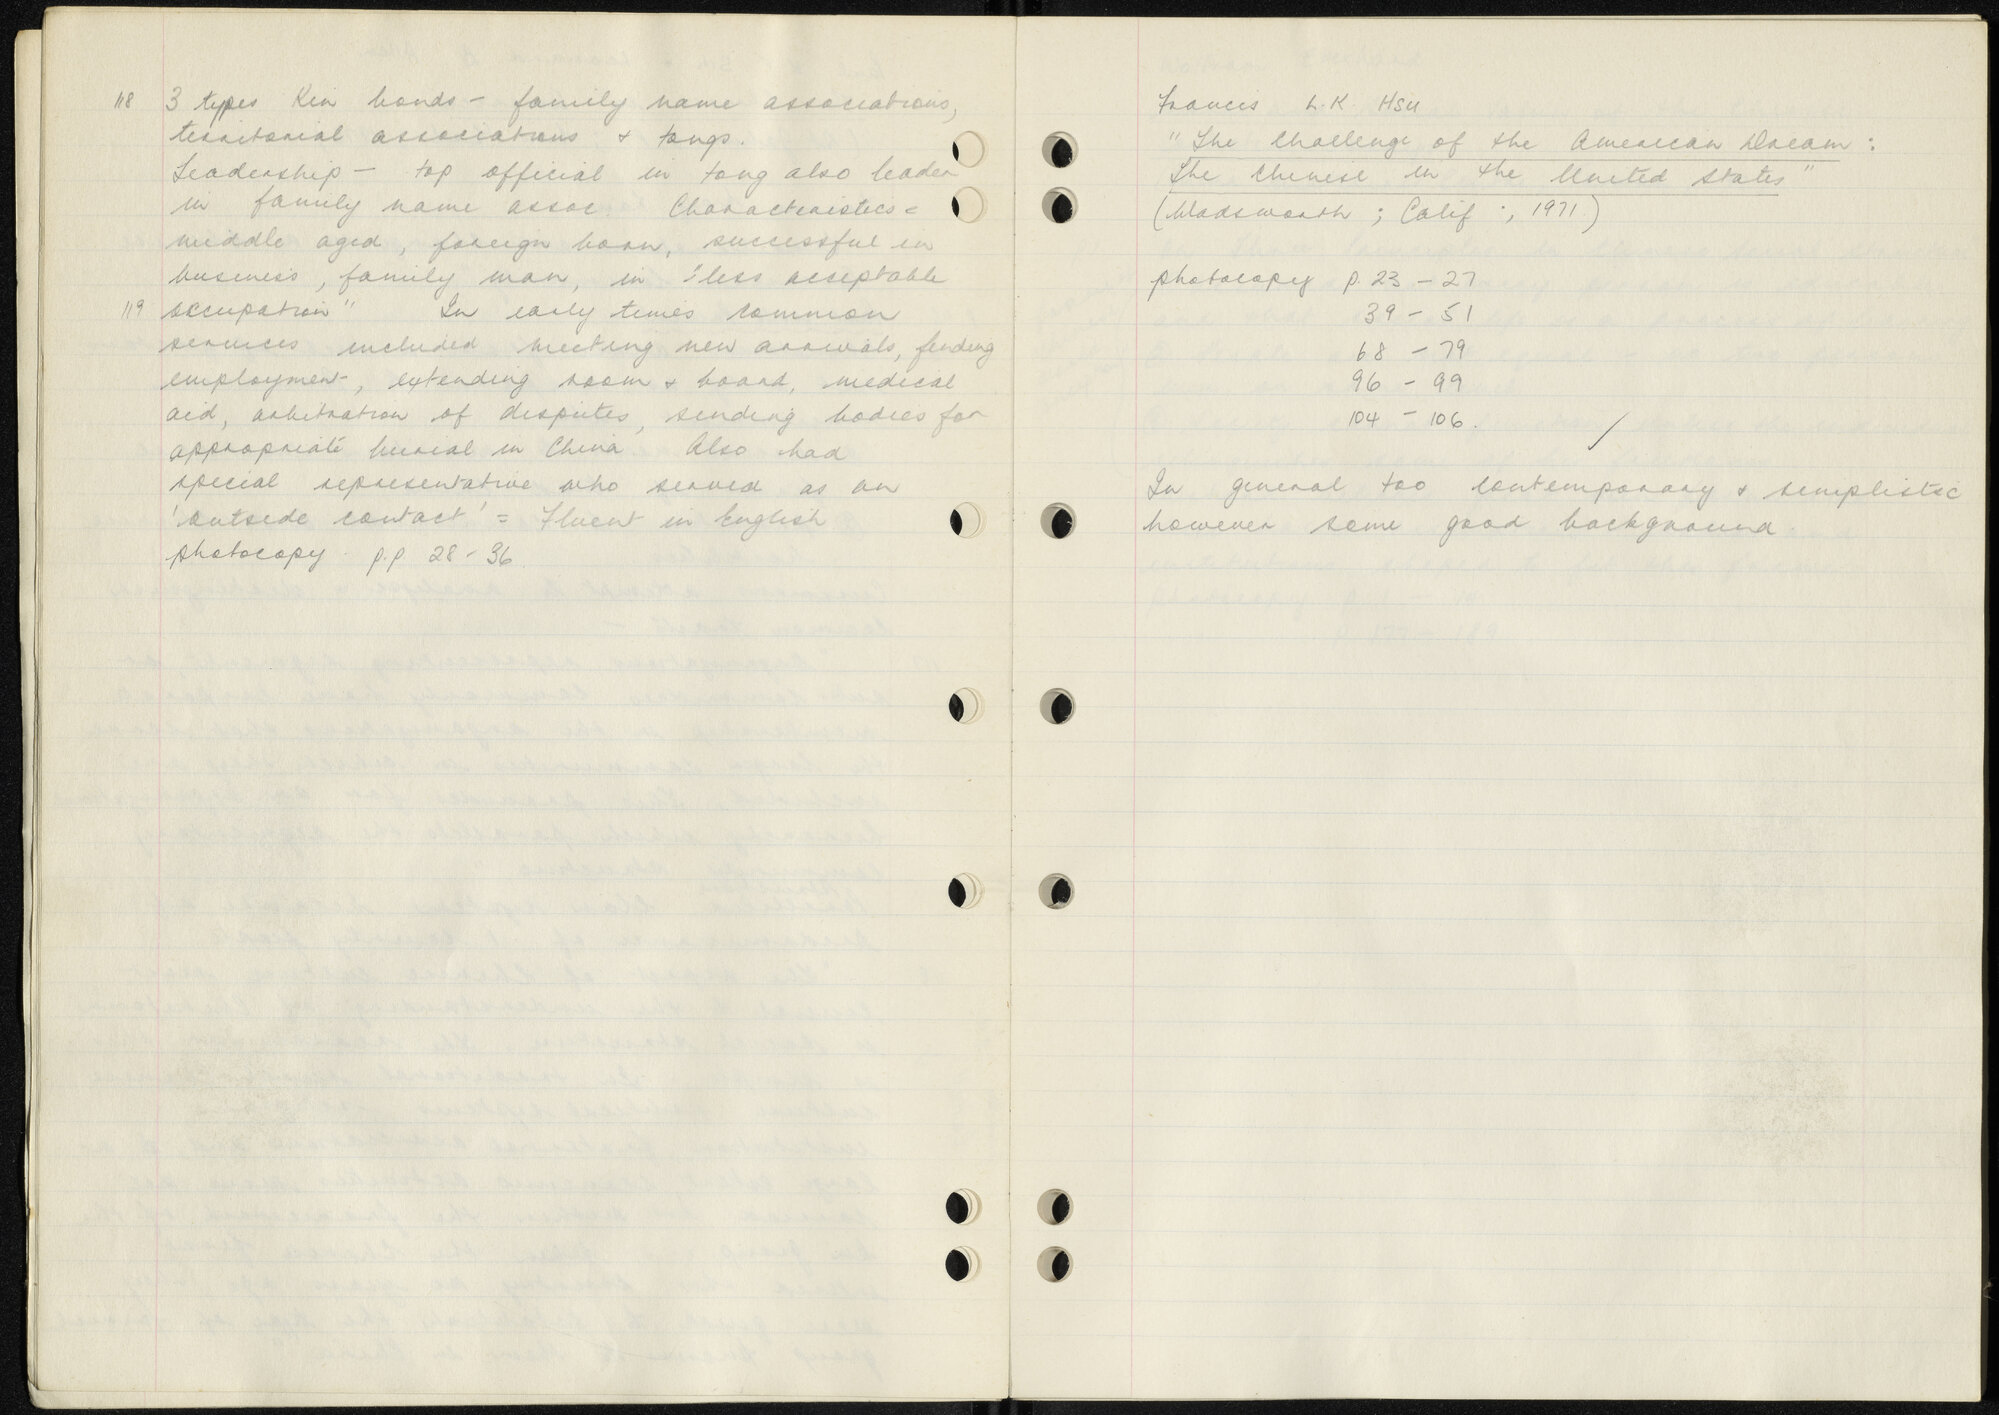 118 3 types Kin bonds - family name associations,
territorial associations & tongs.
Leadership - top official in tong also leader
in family name assoc. Characteristics =
middle aged, foreign born, successful in
business, family man, in "less acceptable
119 occupation" In early times common
services included meeting new arrivals, finding
employment, extending room & board, medical
aid, arbitration of disputes, sending bodies for
appropriate burial in China. Also had
special representative who served as an
'outside contact' = fluent in English
photocopy. p.p 28 - 36.
Francis L.K. HSU
"The Challenge of the American Dream:
The Chinese in the United States"
(Wadsworth; Calif.; 1971.)
photocopy p. 23 - 27
39 - 51
68 - 79
96 - 99
104 - 106.
In general too contemporary & simplistic
however some good background.